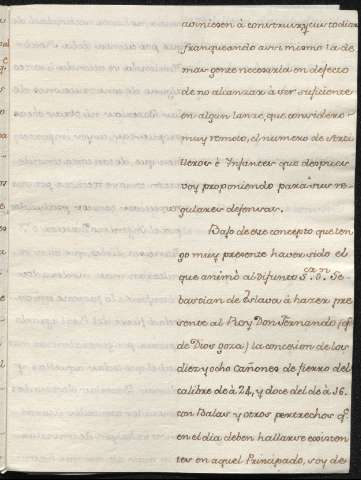 viniesen à construirse, ò
franqueando asi mismo la de
mas gente necesaria en defecto
de no alcanzar à ser suficiente
en algun lanze, que considero
muy remoto, el numero de Arti
lleros è Infantes que despues
voy proponiendo para sus re
gulares defensas.
Bajo de este concepto que ten
go muy presente haver sido el
que animò al difunto S.or D.n Se
bastian de Eslava à hazer pre
sente al Rey Don Fernando (q.
de Dios goza) la concesion de los
diez y ocho Cañones de fierro del
calibre de à 24, y doce del de à 16.
con Balas y otros pertrechos q.e
en el dia deben hallarse existen
tes en aquel Principado, soy de